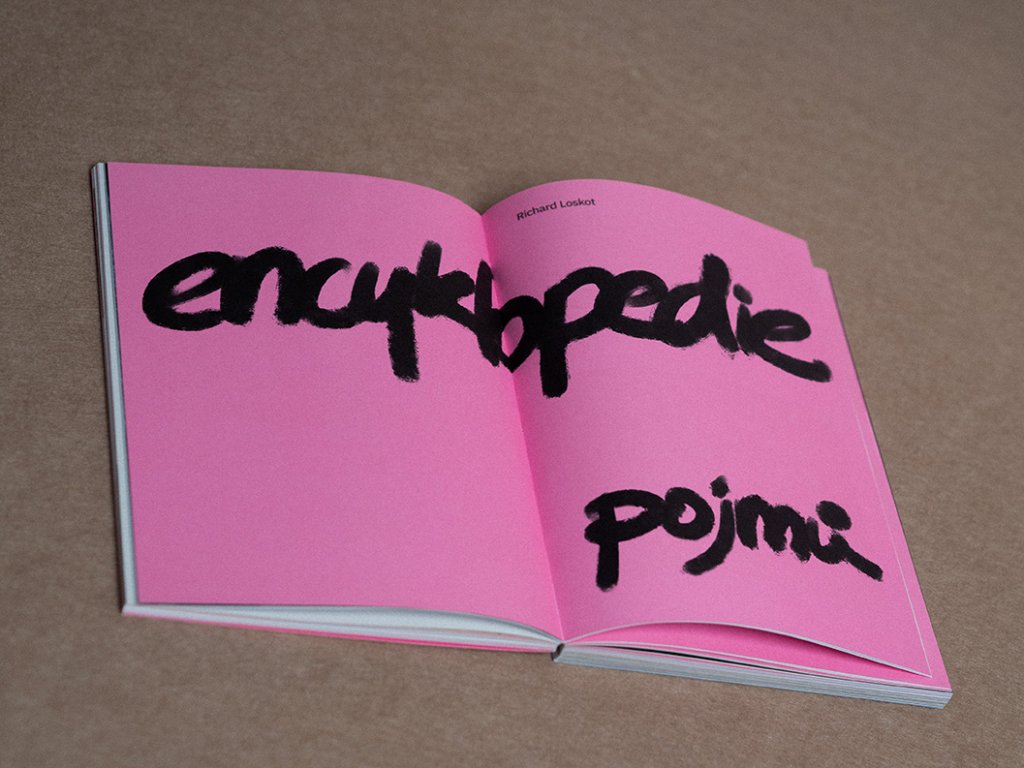 Richard Loskot
encyklopedie
pojmů